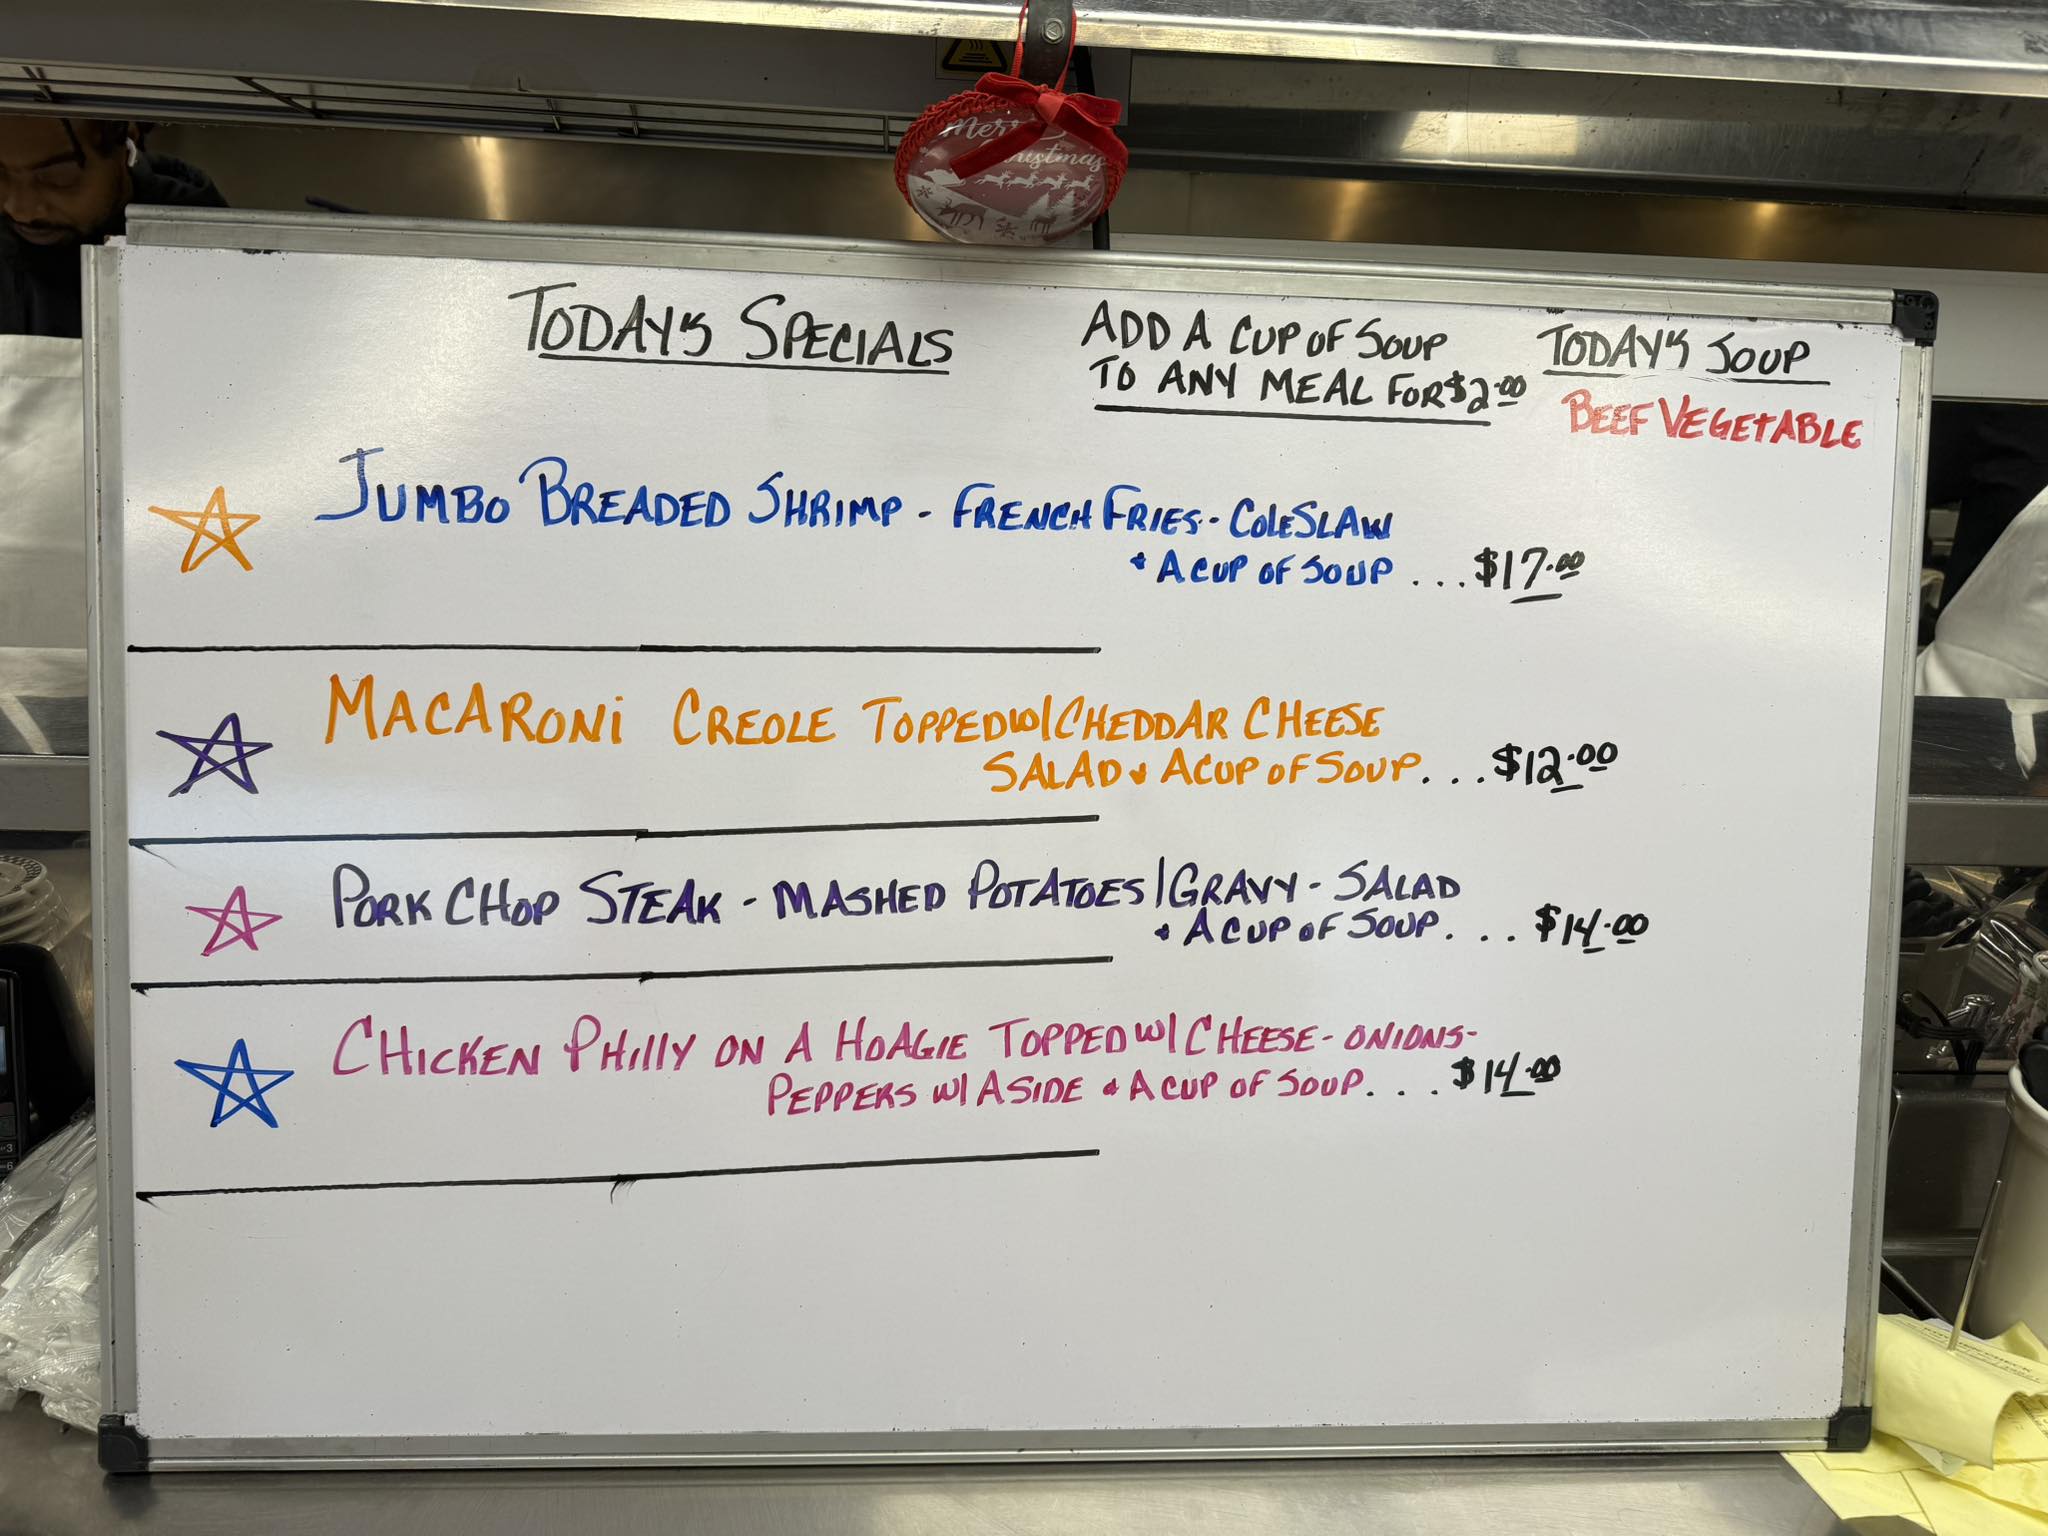 Merry
Christmas
TODAY'S SPECIALS
ADD A CUP OF SOUP
TO ANY MEAL FOR $2.00
TODAY'S SOUP
BEEF VEGETABLE
JUMBO BREADED SHRIMP - FRENCH FRIES - COLESLAW
& A CUP OF SOUP ... $17.00
MACARONI CREOLE TOPPED W/ CHEDDAR CHEESE
SALAD & A CUP OF SOUP... $12.00
PORK CHOP STEAK - MASHED POTATOES/GRAVY - SALAD
& A CUP OF SOUP... $14.00
CHICKEN PHILLY ON A HOAGIE TOPPED W/ CHEESE - ONIONS -
PEPPERS W/ A SIDE & A CUP OF SOUP... $14.00